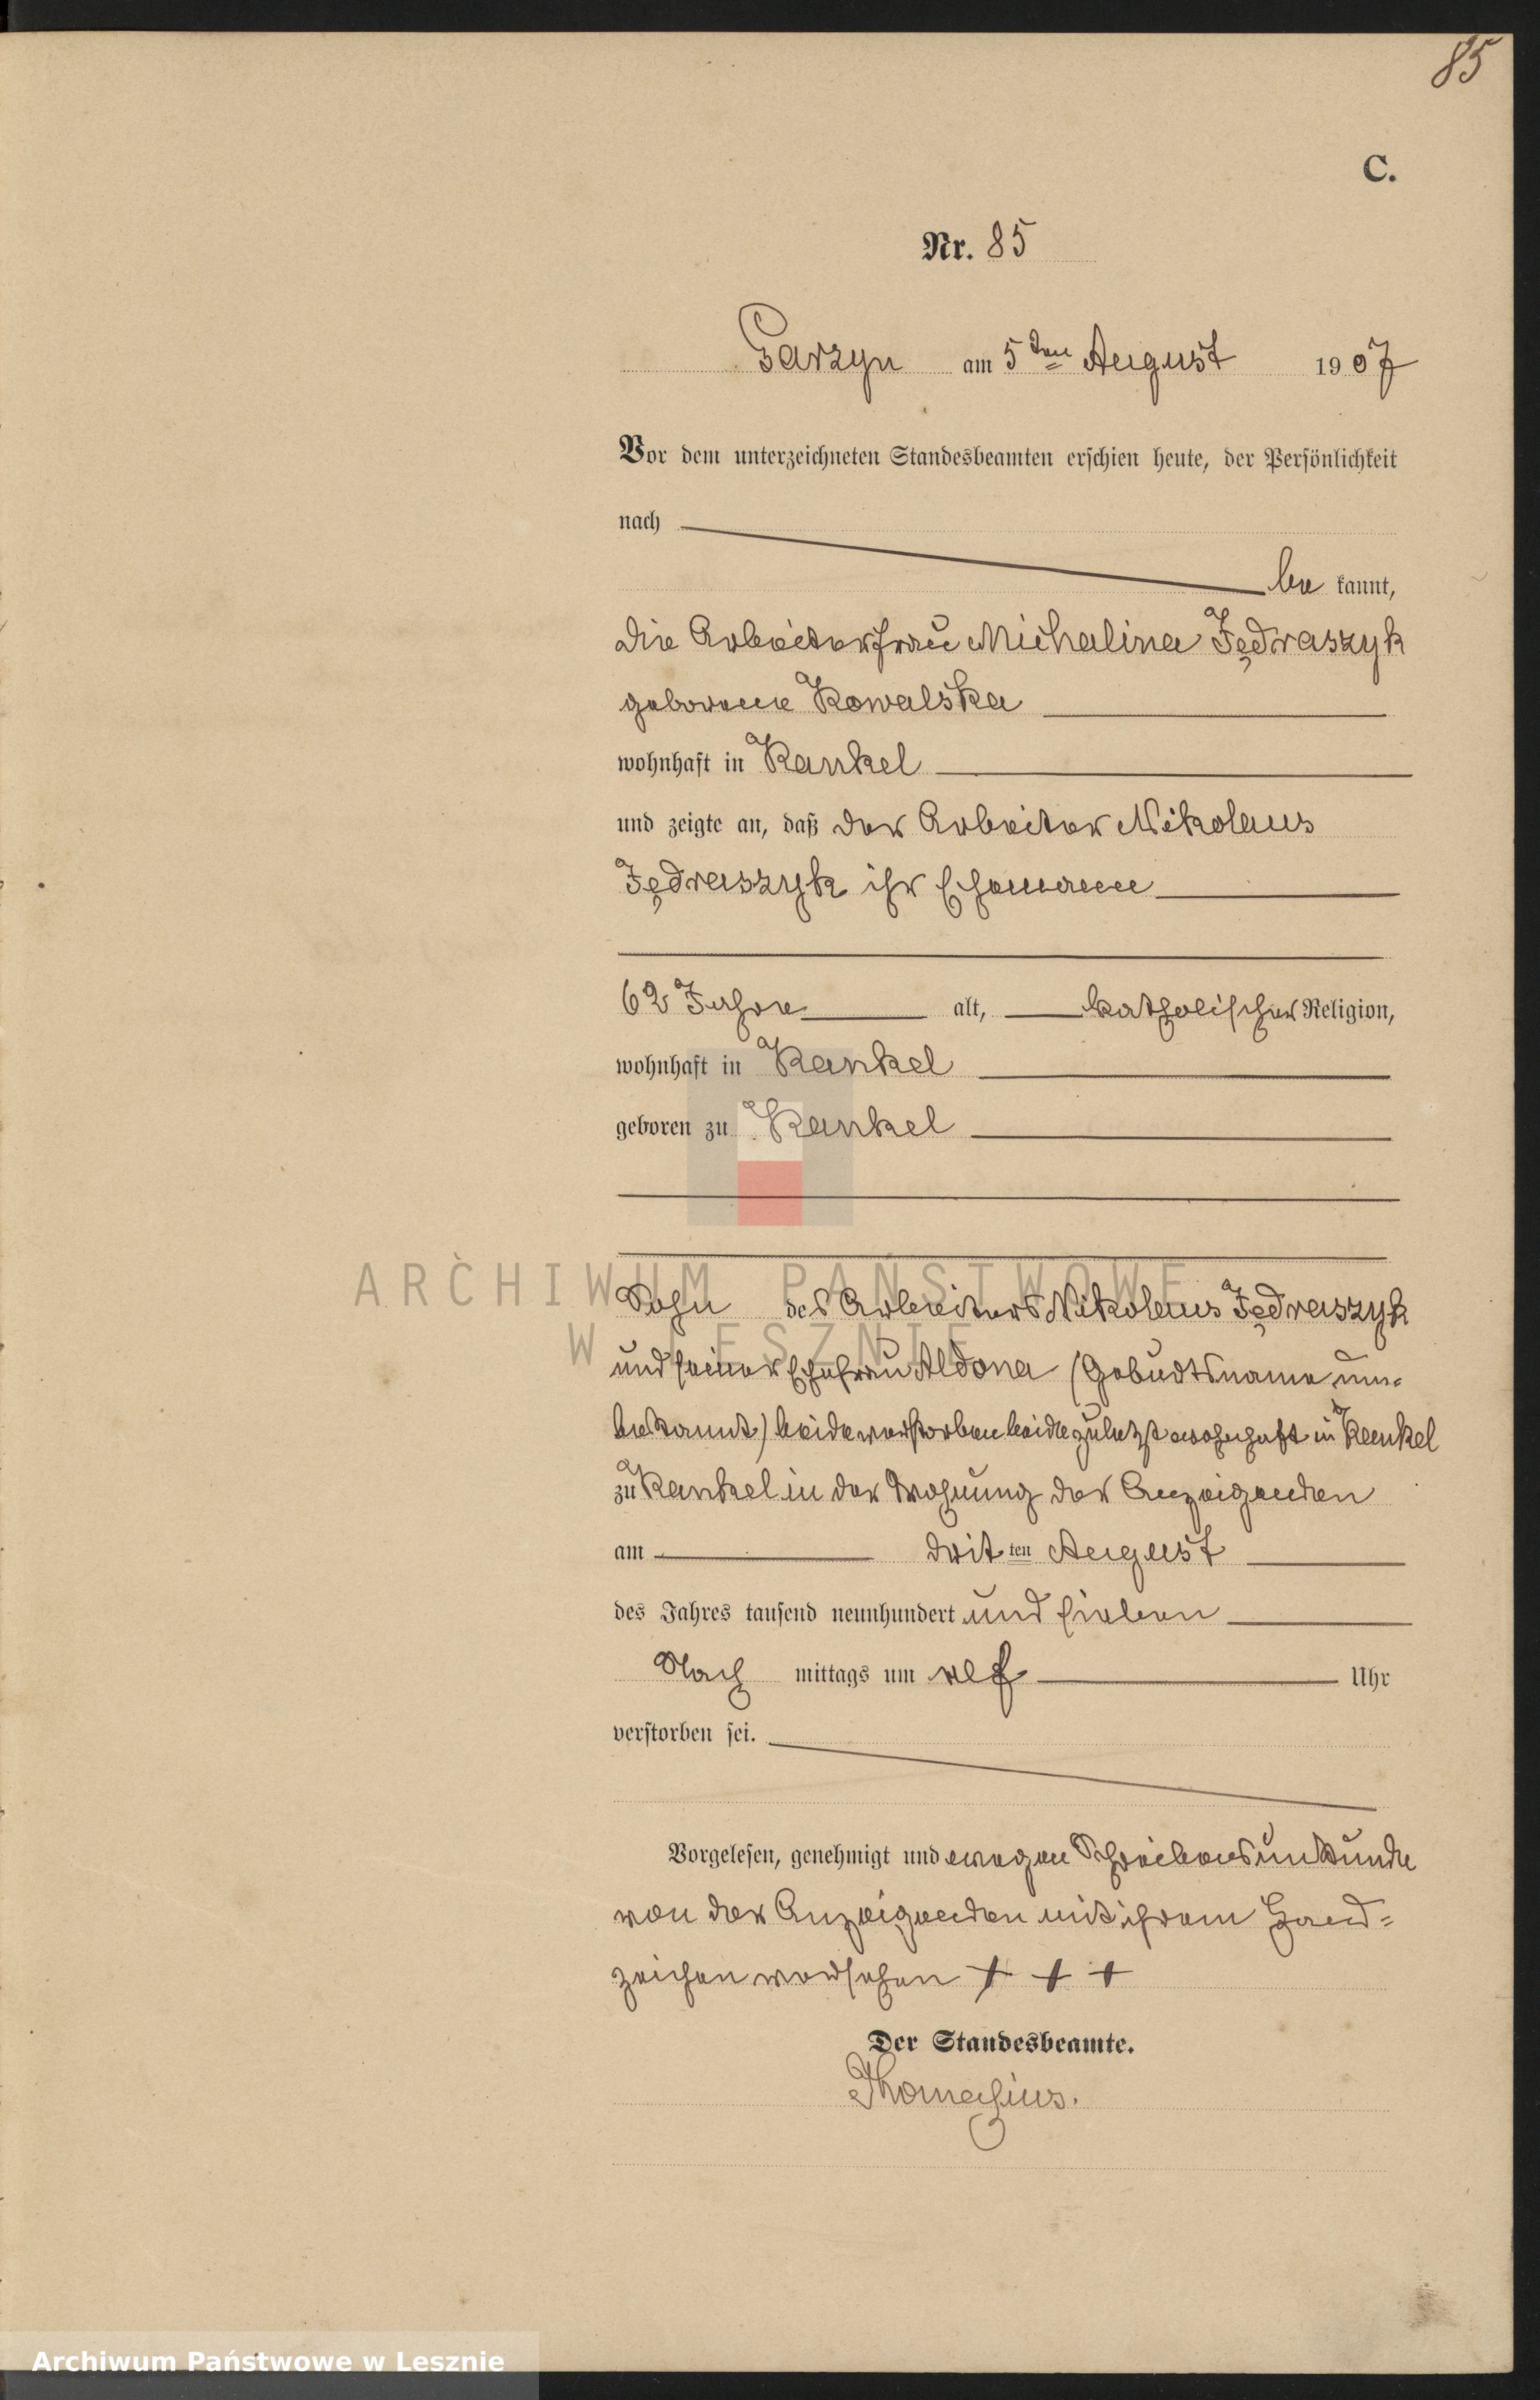 85
C.
Nr. 85
Garzyn am 5ten August 1907
Vor dem unterzeichneten Standesbeamten erschien heute, der Persönlichkeit
nach
be kannt,
die Arbeiterfrau Michalina Jędraszyk
geborene Kowalska
wohnhaft in Kankel
und zeigte an, daß der Arbeiter Nikolaus
Jędraszyk ihr Ehemann
62 Jahre alt, katholischer Religion,
wohnhaft in Kankel
geboren zu Kankel
ARCHIWUM PAŃSTWOWE
Sohn des Arbeiters Nikolaus Jędraszyk
W LESZNIE
und seiner Ehefrau Aldona (Gebudtsname um-
bekannt) beide verstorben beide zuletzt wohnhaft in Kankel
zu Kankel in der Wohnung der Anzeigenden
am drit ten August
des Jahres tausend neunhundert und sieben
Nach mittags um elf Uhr
verstorben sei.
Vorgelesen, genehmigt und wegen Schreibensunkunde
von der Anzeigenden mit ihrem Hand-
zeichen versehen + + +
Der Standesbeamte.
Thomasius.
Archiwum Państwowe w Lesznie